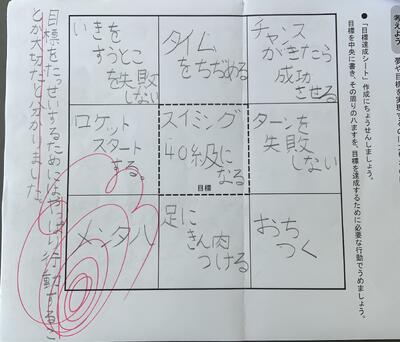 考えよう
●「目標達成シート」作成にちょうせんしましょう。
目標を中央に書き、その周りの八ますを、目標を達成するために必要な行動でうめましょう。
いきを
すうとこ
を失敗
しない
タイム
をちぢめる
チャンス
がきたら
成功
させる
ロケット
スタート
する。
スイミング
40級に
なる
目標
ターンを
失敗
しない
メンタル
足に
きん肉
つける
おち
つく
目標をたっせいするためにはやっぱり行動するこ
とが大切だと分かりました。